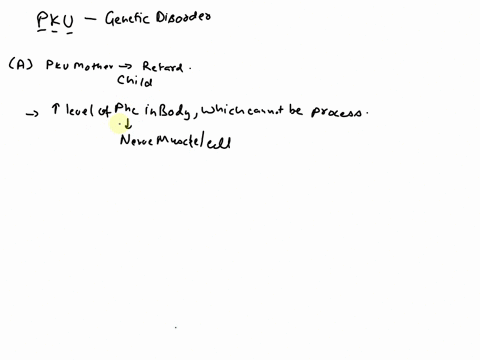 PKU — Genetic Disorder
(A) PKU Mother → Retard.
Child
→ ↑ level of Phe in Body, which cannot be process.
↓
Nerve Muscle/cell